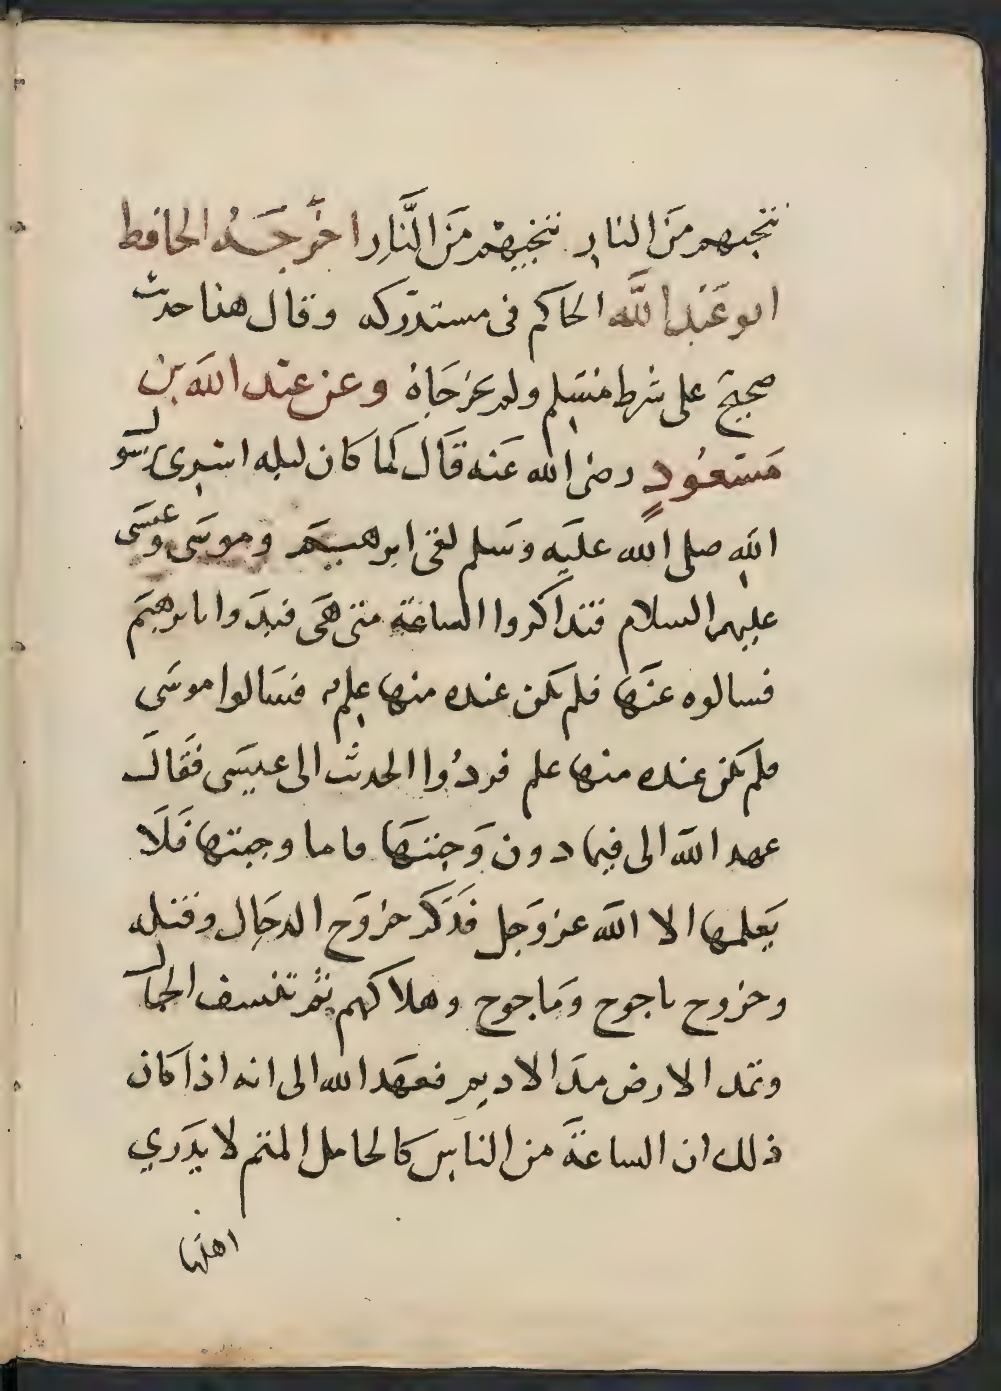 تنجيهم من النار تنجيهم من النار اخرجه الحافظ
ابو عبد الله الحاكم فى مستدركه وقال هذا حديث
صحيح على شرط مسلم ولم يخرجاه وعن عبد الله بن
مسعود رضى الله عنه قال لما كان ليله اسرى برسول
الله صلى الله عليه وسلم لقى ابرهيم وموسى وعيسى
عليهم السلام فتذاكروا الساعة متى هى فبدوا بابرهيم
فسالوه عنها فلم يكن عنده منها علم فسالوا موسى
فلم يكن عنده منها علم فردوا الحديث الى عيسى فقال
عهد الله الى فيما دون وجبتها فاما وجبتها فلا
يعلمها الا الله عز وجل فذكر خروج الدجال وقتله
وخروج ياجوج وماجوج وهلاكهم ثم تنسف الجبال
وتمد الارض مد الاديم فعهد الله الى انه اذا كان
ذلك ان الساعة من الناس كالحامل المتم لا يدري
اهلها